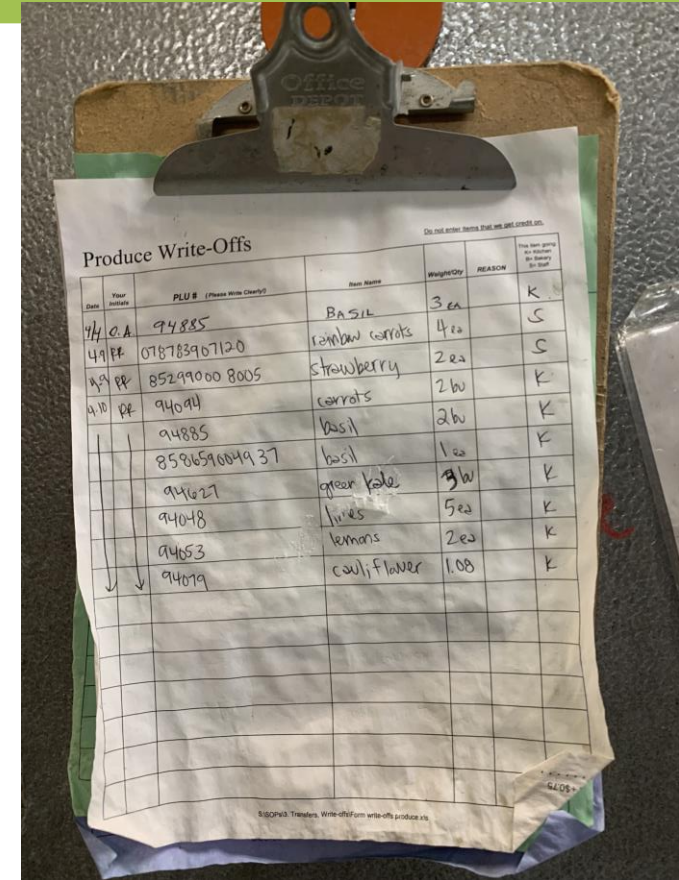 Office
DEPOT
Do not enter items that we get credit on.
Produce Write-Offs
Date Your Initials PLU # (Please Write Clearly!) Item Name Weight/Qty REASON This item going K= Kitchen B= Bakery S= Staff
4/4 O.A 94885 BASIL 3 EA K
4.9 PR 078783907120 rainbow carrots 4 ea S
4.9 PR 85299000 8005 strawberry 2 ea S
4.10 PR 94094 carrots 2 bu K
94885 basil 2 bu K
858659004937 basil 1 ea K
94627 green kales 3 bu K
94048 limes 5 ea K
94053 lemons 2 ea K
94079 cauliflower 1.08 K
S:\SOPs\3. Transfers, Write-offs\Form write-offs produce.xls
+$0.75